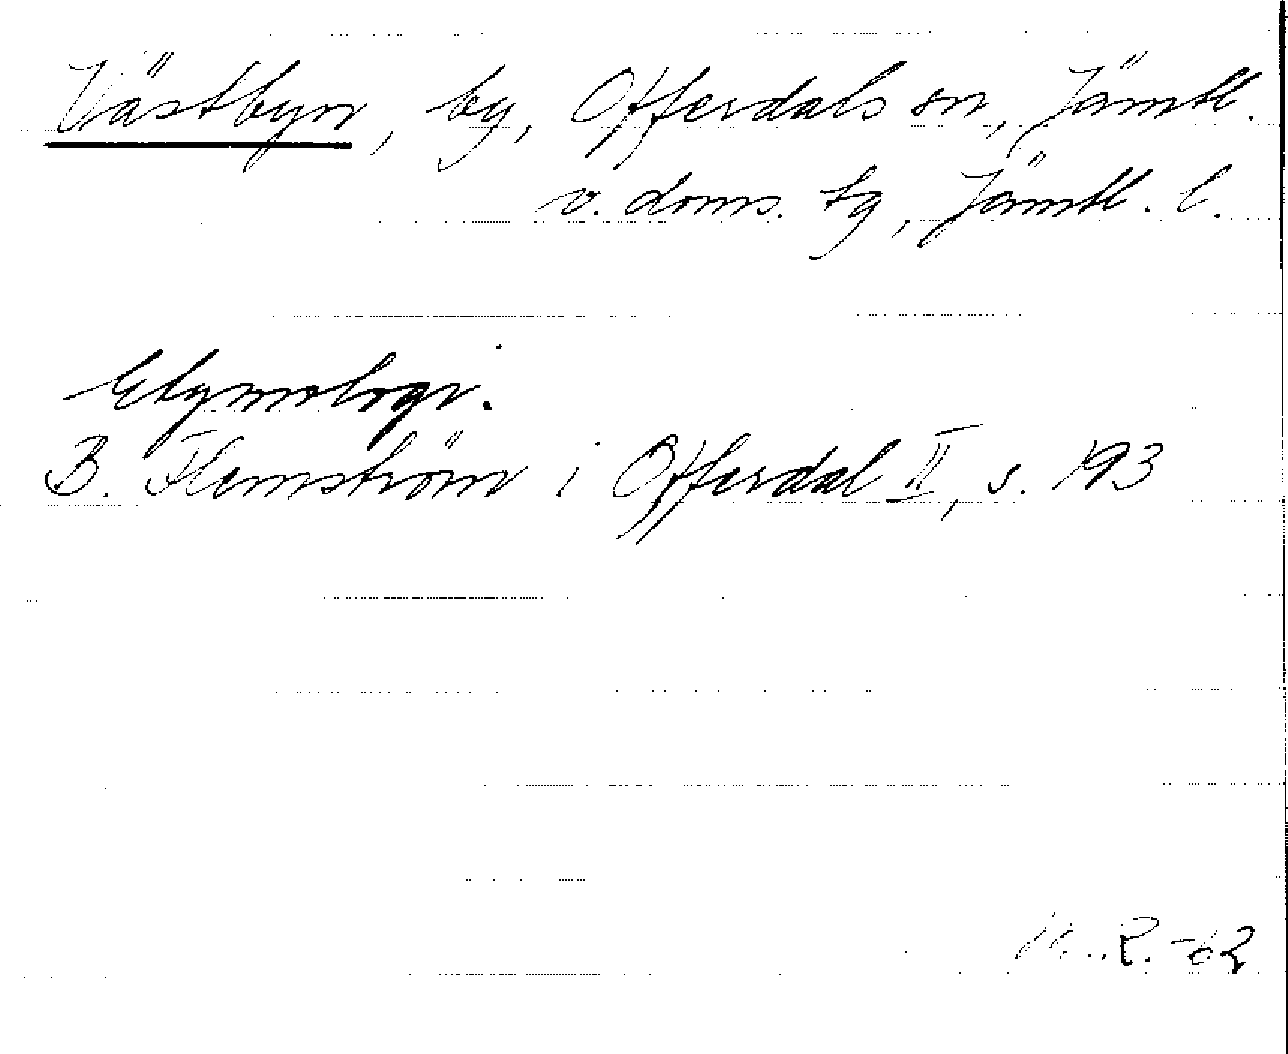 Västbyn, by, Offerdals sn, Jämtl.
v. doms. tg, Jämtl. l.
Etymologi.
B. Flemström i Offerdal II, s. 193
R. -62